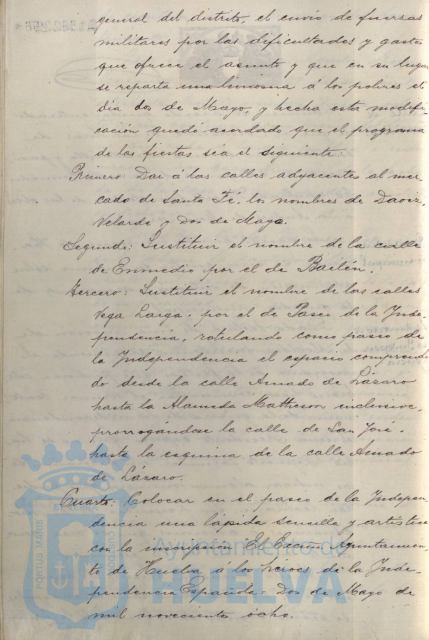 general del distrito, el envío de fuerzas
militares por las dificultades y gastos
que ofrece el asunto y que en su lugar
se reparta una limosna á los pobres el
dia dos de Mayo, y hecha esta modifi-
cación quedó acordado que el programa
de las fiestas sea el siguiente.
Primero: Dar á las calles adyacentes al mer-
cado de Santa Fé, los nombres de Daoiz,
Velarde y Dos de Mayo.
Segundo: Sustituir el nombre de la calle
de Enmedio por el de Bailén.
Tercero: Sustituir el nombre de las calles
Vega Larga, por el de Paseo de la Inde-
pendencia, rotulando como paseo de
la Independencia el espacio comprendi-
do desde la calle Amado de Lázaro
hasta la Alameda Matheson inclusive,
prorrogándose la calle de San José,
hasta la esquina de la calle Amado
de Lázaro.
Cuarto: Colocar en el paseo de la Indepen-
dencia una lápida sencilla y artística
con la inscripción El Excmo Ayuntamien-
to de Huelva á los héroes de la Inde-
pendencia Española = Dos de Mayo de
mil novecientos ocho.
Ayuntamiento de
HUELVA